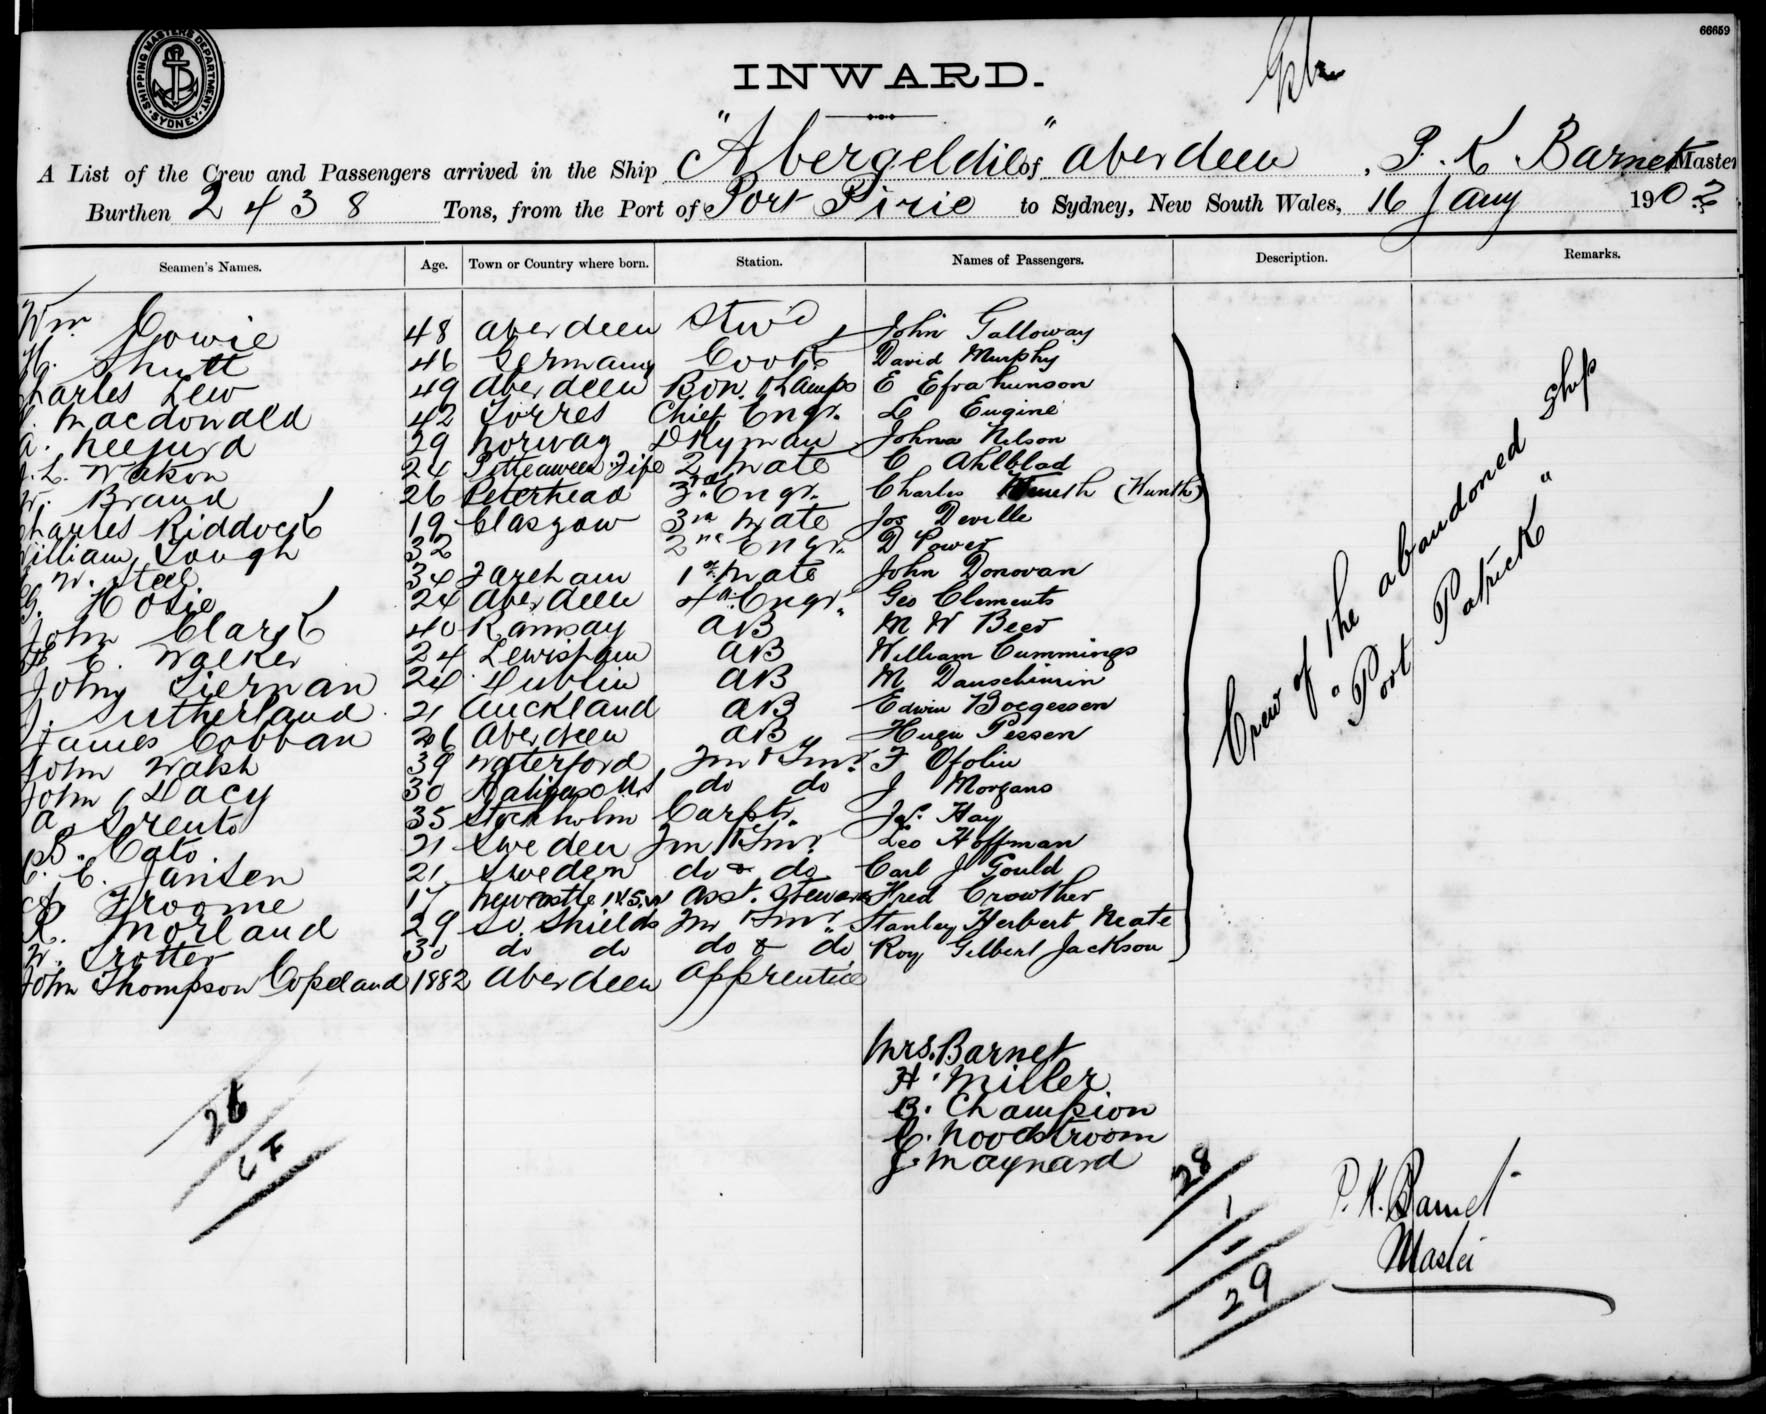 66659
SHIPPING MASTERS DEPARTMENT
SYDNEY
INWARD.
A List of the Crew and Passengers arrived in the Ship "Abergeldie" of Aberdeen, P. K Barnet Master
Burthen 2438 Tons, from the Port of Port Pirie to Sydney, New South Wales, 16 Jany 190
Seamen's Names. Age. Town or Country where born. Station. Names of Passengers. Description. Remarks.
Wm Cowie 48 Aberdeen Stwd John Galloway
H. Shutt 46 Germany Cook David Murphy
Charles Lew 49 Aberdeen Bon. & Lamps E Efrahunson
Macdonald 42 Torres Chief Engr. L Eugine
A. Neejurd 29 Norway Dkyman Johna Nelson
J. L. Watson 24 Pittenweem Fife 2 Mate C Ahlblad
W. Brand 26 Peterhead 3rd Engr. Charles (Hunth)
Charles Riddock 19 Glasgow 3rd Mate Jos Deville
William Gough 32 2nd Engr. D Power
W. Steel 34 Fareham 1st Mate John Donovan
G. Hosie 24 Aberdeen 4th Engr. Geo Clements
John Clark 40 Ramsay AB M W Beer
E. Walker 24 Lewisham AB William Cummings
John Tiernan 24 Dublin AB M Dauschinrin
J. Sutherland 21 Auckland AB Edwin Boegessen
James Cobban 26 Aberdeen AB Hugu Pessen
John Walsh 39 Waterford Fm & Tmr F Ofolin
John Dacy 30 do do J Morgans
A. Trento 35 Stockholm Carptr. Jas. Hay
B. Cato. 21 Sweden Fm & Tmr Leo Hoffman
C. E. Jansen 21 Sweden do & do Carl J Gould
A Froome 17 Newcastle N.S.W Asst. Steward Fred Crowther
R. Morland 29 So Shields Fm & Tmr. Stanley Herbert Neate
W. Trotter 30 do do do & do Roy Gilbert Jackson
John Thompson Copeland 1882 Aberdeen Apprentice
Crew of the abandoned ship
"Port Patrick"
Mrs. Barnet
H. Miller
B. Champion
C. Noodstroom
J. Maynard
26
28
1
29
P. K. Barnet
Master